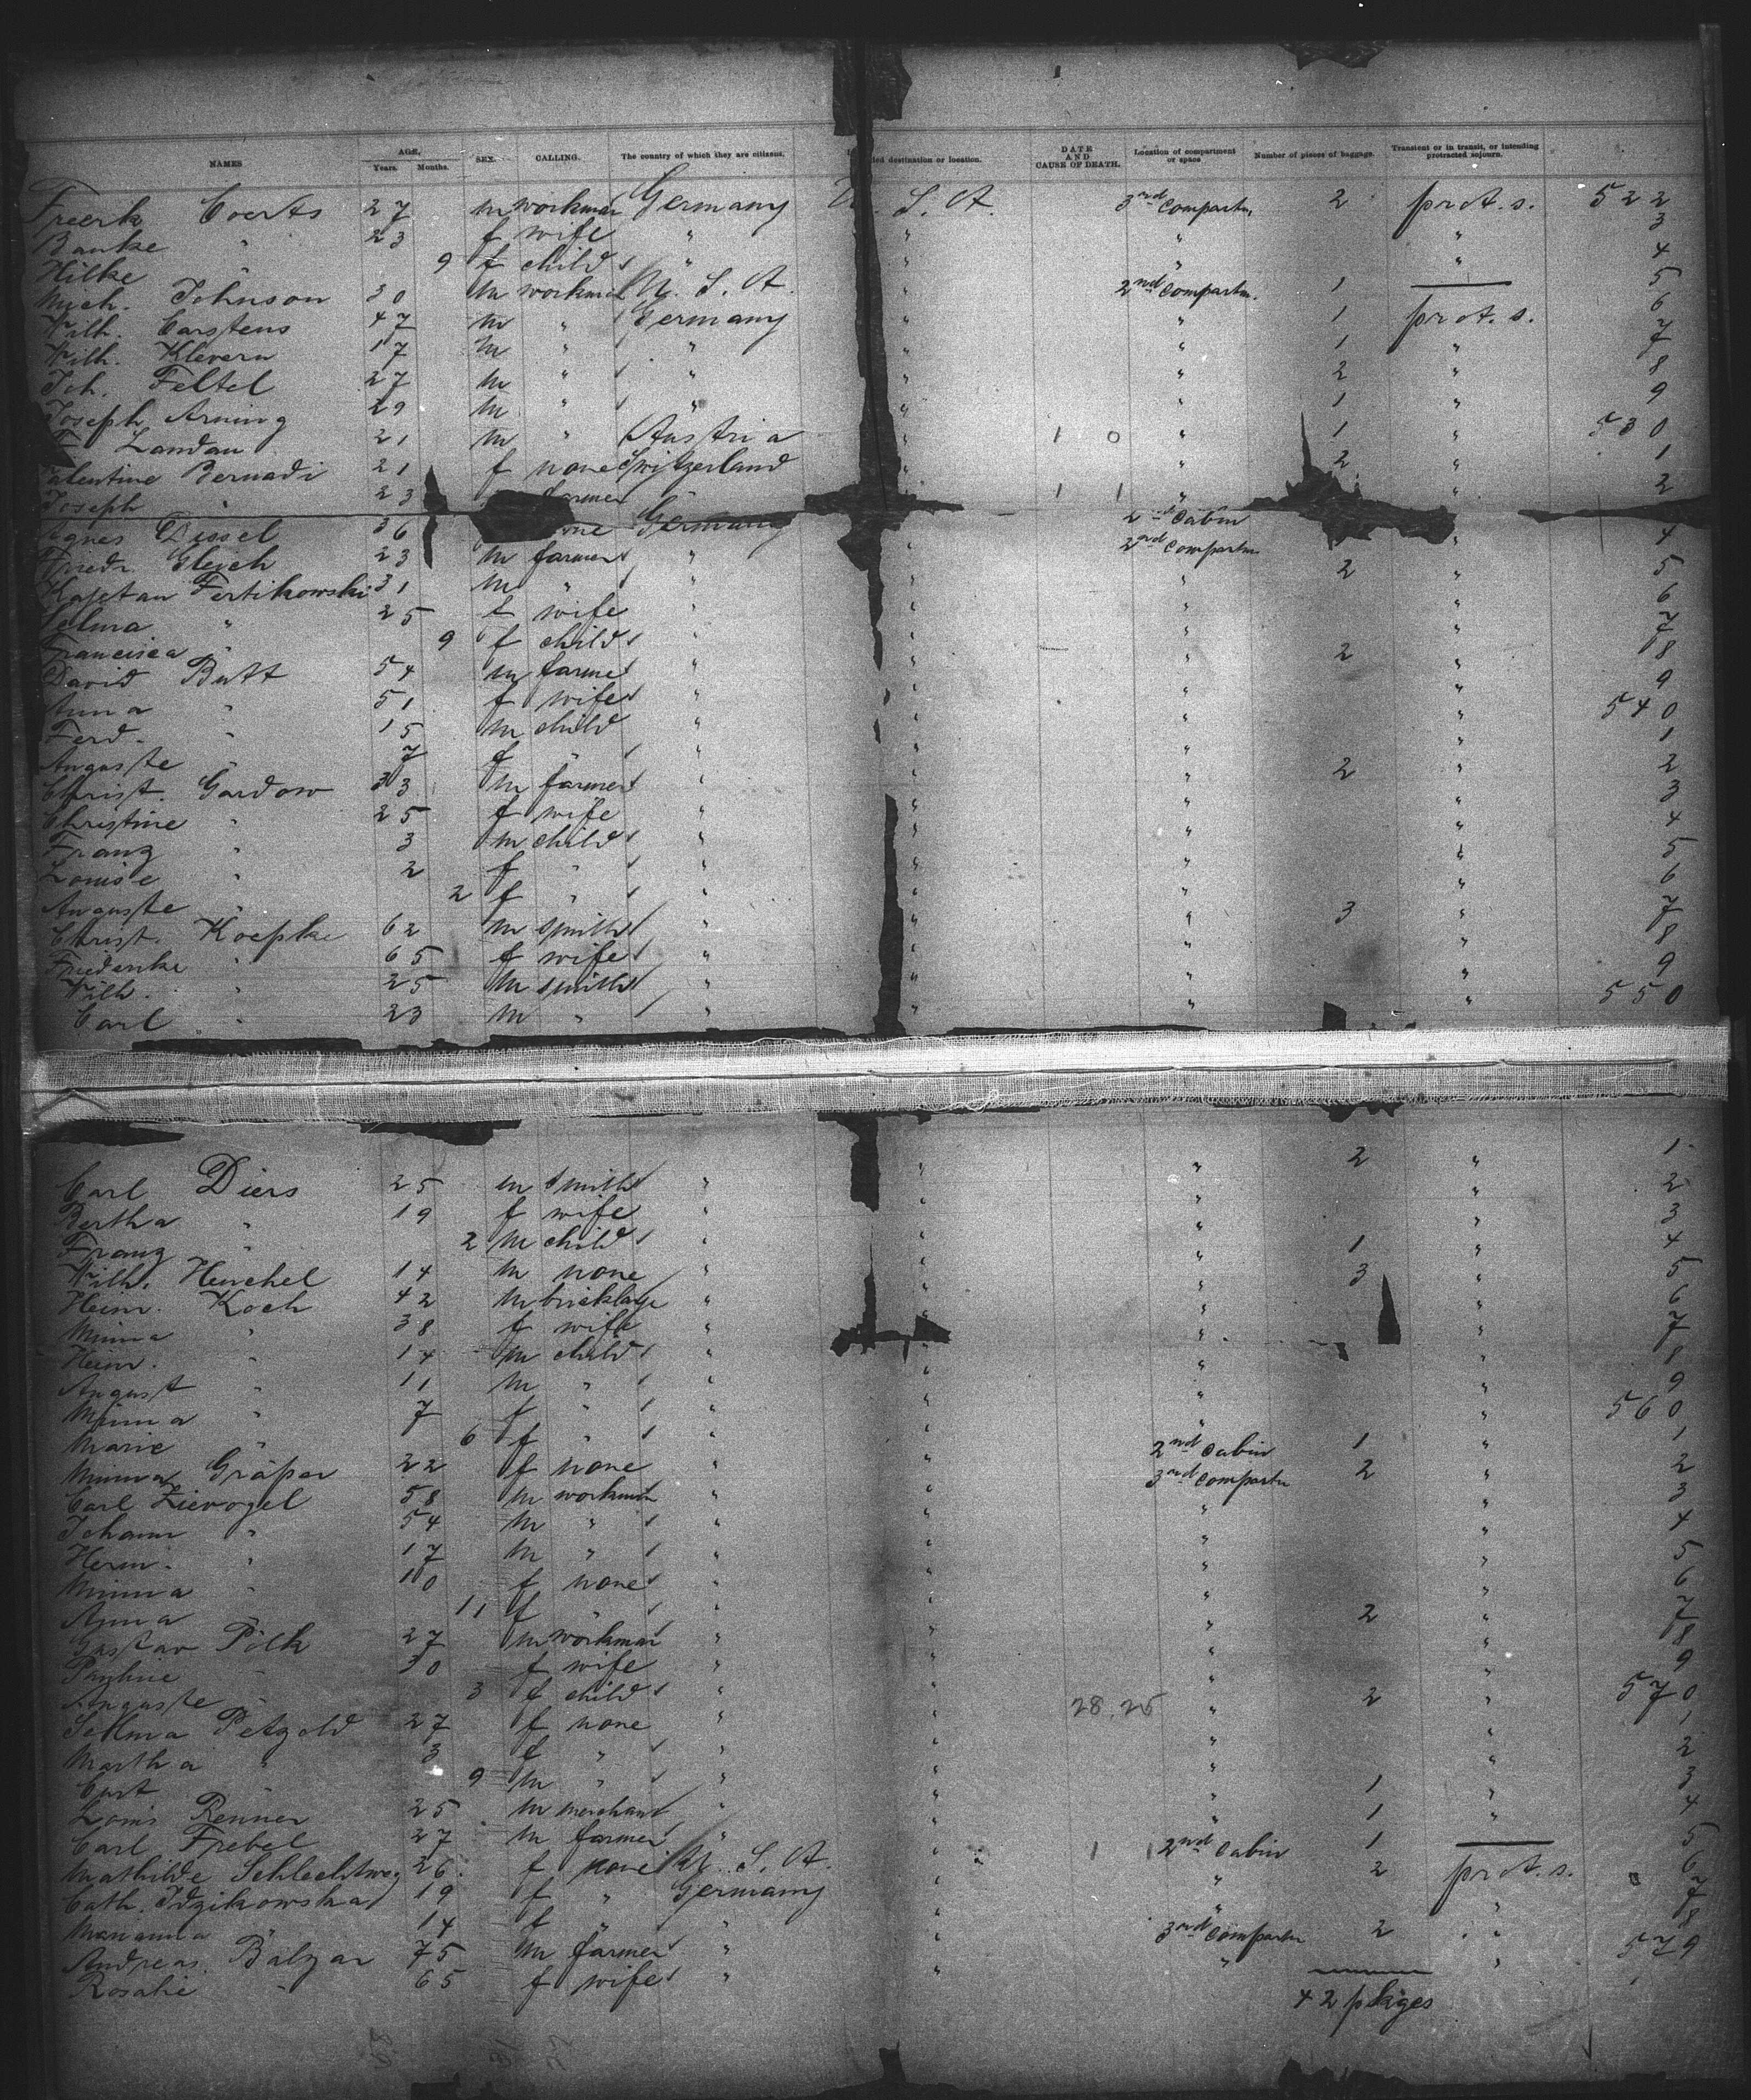 NAMES AGE, Years. Months. SEX. CALLING. The country of which they are citizens. ded destination or location. DATE AND CAUSE OF DEATH. Location of compartment or space Number of pieces of baggage. Transient or in transit, or intending protracted sojourn.
Freerk Coerts 27 m workman Germany U. S. A. 3rd Compartm. 2 prot. s. 522
Bauke " 23 f wife " " " " 3
Hilke " 9 f child " " " " 4
Mich. Johnson 30 m workman U. S. A. " 2nd Compartm. 1 — 5
Wilh. Carstens 47 m " Germany " " 1 prot. s. 6
Wilh. Klevern 17 m " " " " 1 " 7
Joh. Feltel 27 m " " " " 2 " 8
Joseph Arning 29 m " " " " 1 " 9
Landau 21 m " Austria " 10 " 1 " 530
Valentine Bernadi 21 f none Switzerland " " 2 " 1
Joseph " 23 farmer " 11 " " 2
Agnes Dissel 36 Germany " 2nd Cabin
Friedr. Gleich 23 m farmer " " 2nd Compartm " 4
Kajetan Fertikowski 31 m " " " " 2 " 5
Selma " 25 f wife " " " " 6
Francisca " 9 f child " " " " 7
David Butt 54 m farmer " " " 2 " 8
Anna " 51 f wife " " " " 9
Ferd. " 15 m child " " " " 540
Auguste " 7 f " " " " " 1
Christ. Gardow 33 m farmer " " " 2 " 2
Christine " 25 f wife " " " " 3
Franz " 3 m child " " " " 4
Louise " 2 f " " " " " 5
Auguste " 2 f " " " " " 6
Christ. Koepke 62 m smith " " " 3 " 7
Friederike " 65 f wife " " " " 8
Wilh. " 25 m smith " " " " 9
Carl " 23 m " " " " " 550
Carl Diers 25 m smith " " " 2 " 1
Bertha " 19 f wife " " " " 2
Franz " 2 m child " " " " 3
Wilh. Henchel 14 m none " " " 1 " 4
Heinr. Koch 42 m bricklaye " " " 3 " 5
Minna " 38 f wife " " " " 6
Heinr. " 14 m child " " " " 7
August " 11 m " " " " " 8
Minna " 7 f " " " " " 9
Marie " 6 f " " " " " 560
Minna Gräper 22 f none " " 2nd Cabin 1 " 1
Carl Zievogel 58 m workman " " 3rd Compartm 2 " 2
Johann " 54 m " " " " " 3
Herm. " 17 m " " " " " 4
Minna " 10 f none " " " " 5
Anna " 11 f " " " " " 6
Gustav Pölk 27 m workman " " " 2 " 7
Pauline " 30 f wife " " " " 8
Auguste " 3 f child " " " " 9
Selma Petzold 27 f none " " 28.25 " 2 " 570
Martha " 3 f " " " " " 1
Curt " 9 m " " " " " 2
Louis Renner 25 m merchant " " " 1 " 3
Carl Frebel 27 m farmer " " " 1 " 4
Mathilde Schlechtweg 26 f none U. S. A. " 11 2nd Cabin 1 — 5
Cath. Idzikowska 19 f " Germany " " 2 prot. s. 6
Marianna " 14 f " " " " " 7
Andreas Balzar 75 m farmer " " 3rd Compartm 2 " 8
Rosalie " 65 f wife " " " " 579
42 pkges